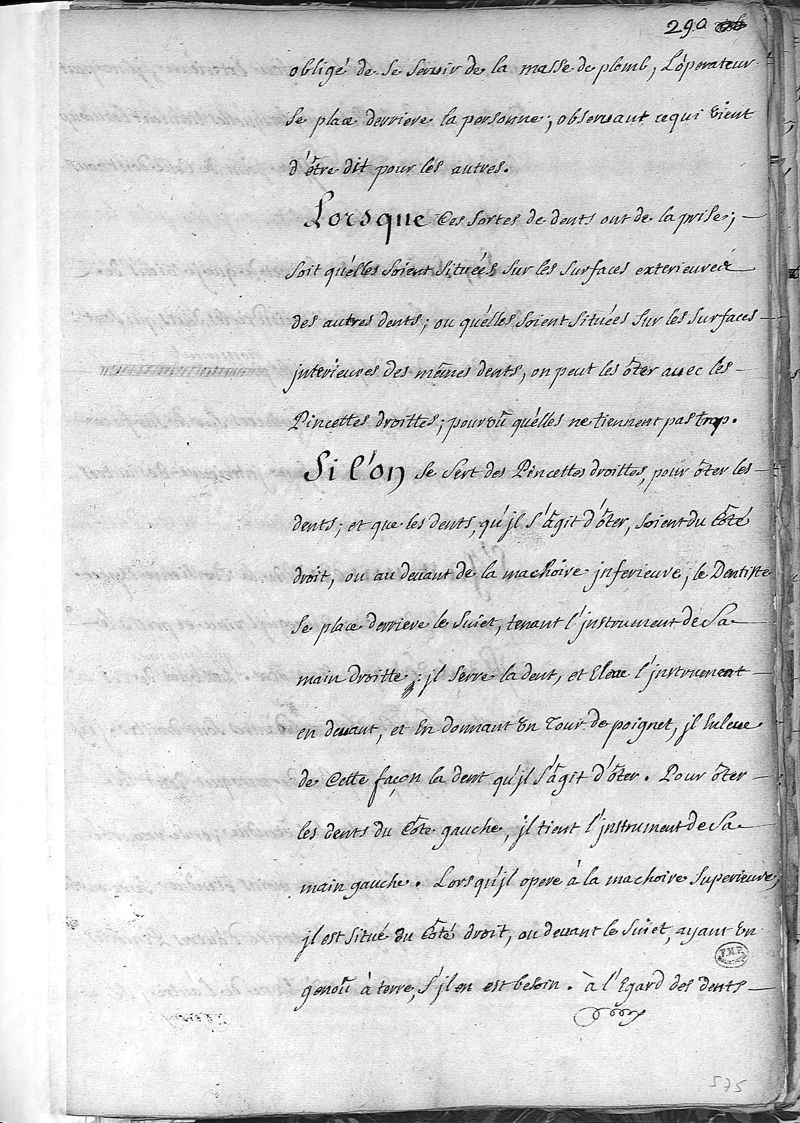 290
obligé de se seruir de la masse de plomb, L'óperateur
se place derriere la personne; obseruant cequi vient
d'être dit pour les autres.
Lorsque Ces sortes de dents ont de la prise;
soit qu'élles soient situées sur les surfaces exterieures
des autres dents; ou qu'élles soient situées sur les surfaces
jnterieures des mêmes dents, on peut les ôter auec les
Pincettes droittes; pourvû qu'élles ne tiennent pas trop.
Si l'on se sert des Pincettes droittes, pour ôter les
dents; et que les dents, qu'jl s'âgit d'ôter, soient du Côté
droit, ou au deuant de la machoire jnferieure, le Dentiste
se place derriere le suiet, tenant l'jnstrument de sa
main droitte; jl serre la dent, et Eleue l'jnstrument
en deuant, et En donnant Un Tour de poignet, jl Enleue
de Cette façon la dent qu'jl s'âgit d'ôter. Pour ôter
les dents du Côte gauche, jl tient l'jnstrument de sa
main gauche. Lorsqu'jl opere à la machoire superieure,
jl est situé du Côté droit, ou deuant le suiet, ayant Un
genoû à terre, s'jl en est besoin. à l'Egard des dents
575